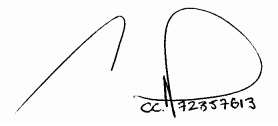 CC. 72357613